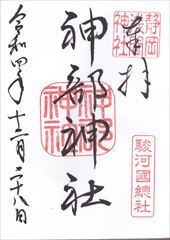 奉拝
静岡
浅間
神社
神部神社
駿河國總社
令和四年十二月二十八日